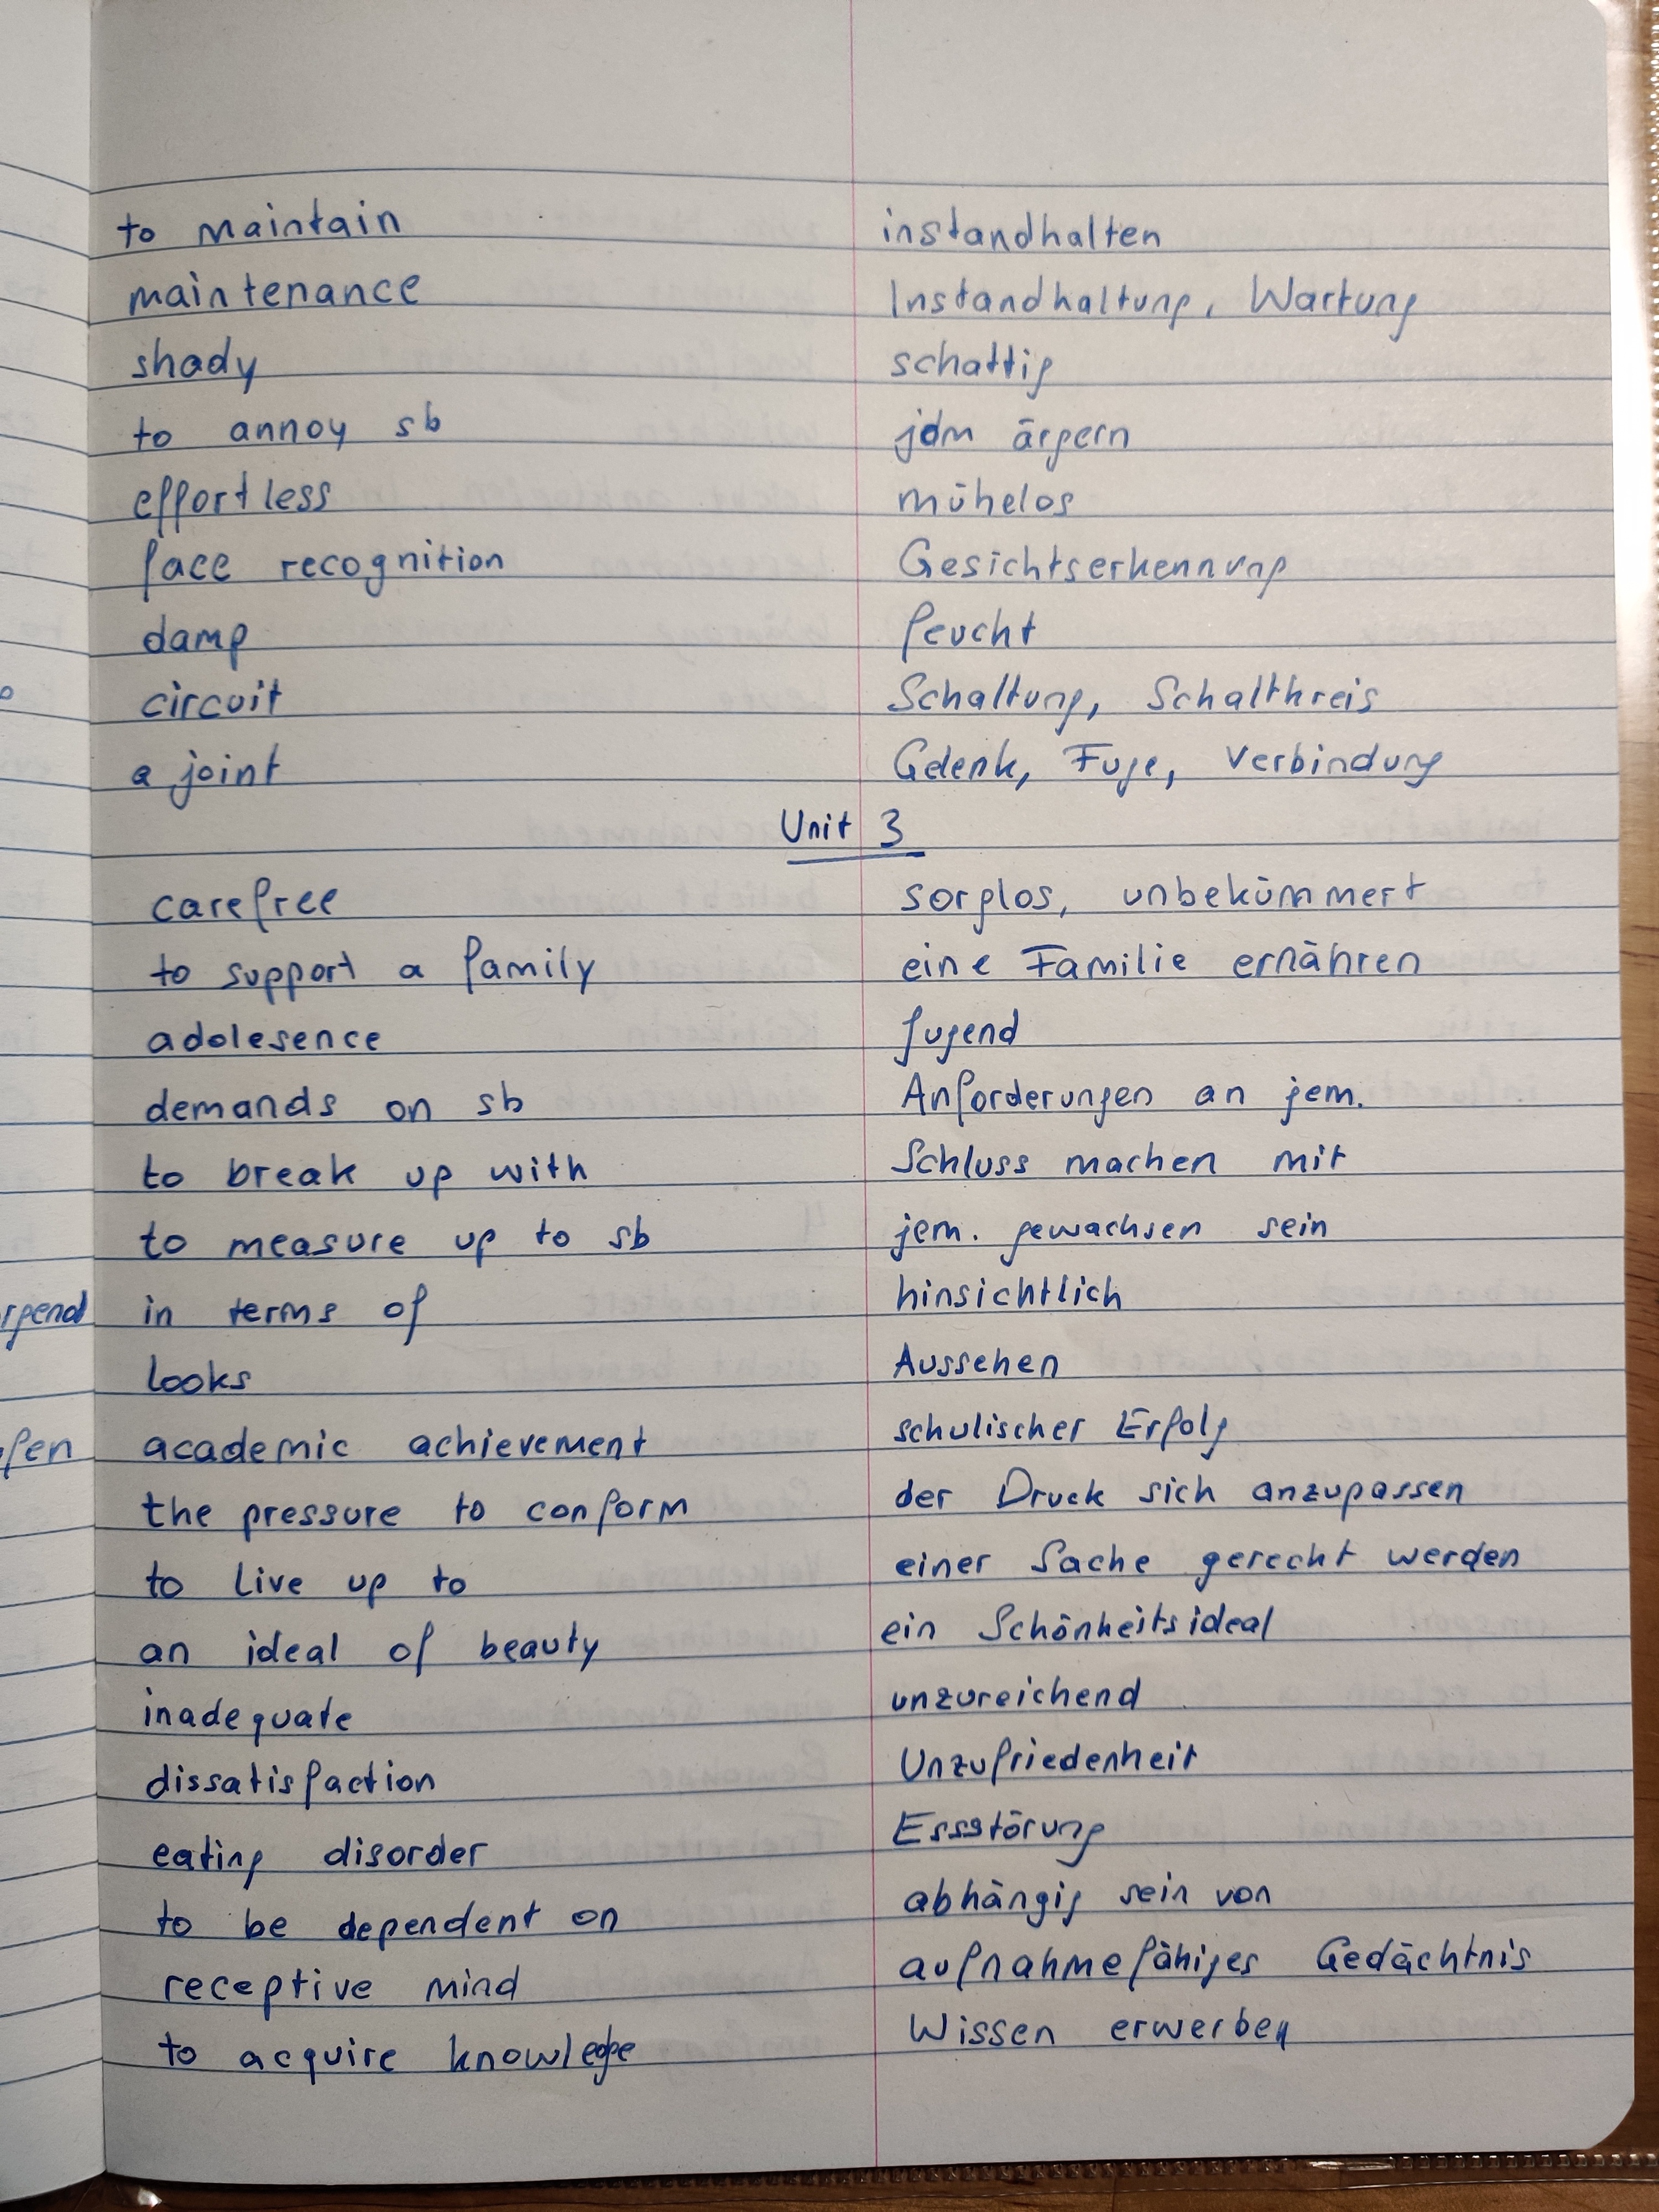 to maintain instandhalten
maintenance Instandhaltung, Wartung
shady schattig
to annoy sb jdm ärgern
effortless mühelos
face recognition Gesichtserkennung
damp feucht
circuit Schaltung, Schaltkreis
a joint Gelenk, Fuge, Verbindung
Unit 3
carefree sorglos, unbekümmert
to support a family eine Familie ernähren
adolesence Jugend
demands on sb Anforderungen an jem.
to break up with Schluss machen mit
to measure up to sb jem. gewachsen sein
rgend in terms of hinsichtlich
looks Aussehen
fen academic achievement schulischer Erfolg
the pressure to conform der Druck sich anzupassen
to live up to einer Sache gerecht werden
an ideal of beauty ein Schönheitsideal
inadequate unzureichend
dissatisfaction Unzufriedenheit
eating disorder Essstörung
to be dependent on abhängig sein von
receptive mind aufnahmefähiges Gedächtnis
to acquire knowledge Wissen erwerben